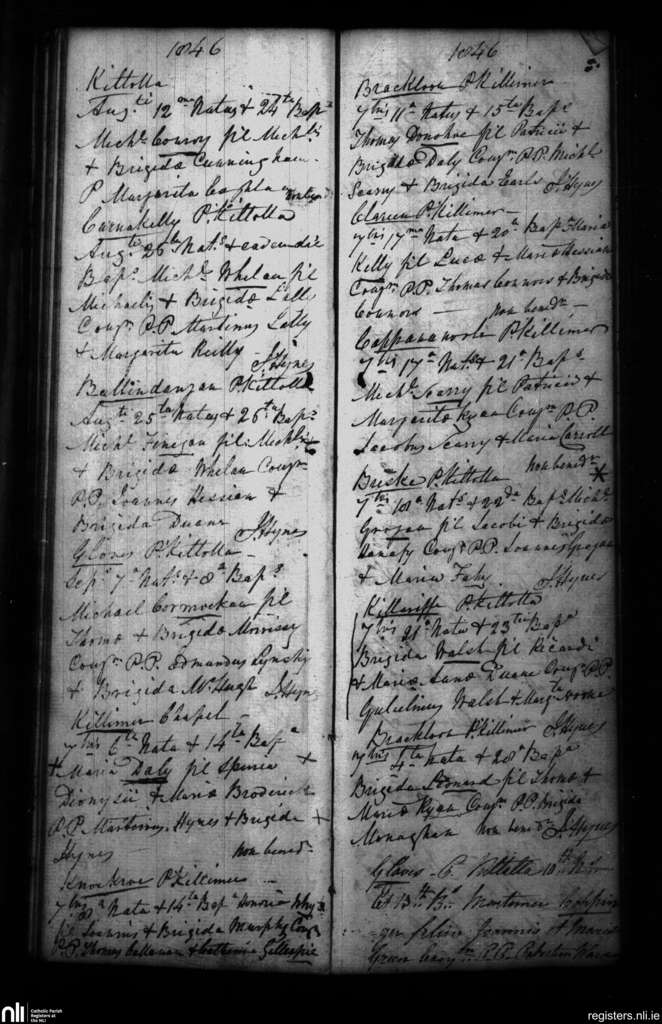 1846
Kittolla
Augti 12ma Natus & 24ta Baps
Michl Conroy fil Michlis
& Brigidæ Cunningham
P Margarita Coghlan
Carnakelly P. Kittolla
Augti 26ta Nats & eadem die
Baps Michl Whelan fil
Michaelis & Brigidæ Lally
Cougm P.P Martinus Lally
& Margarita Reilly J. Hynes
Ballindangan P. Kittolla
Augti 25ta Natus & 26ta Baps
Michl Finegan fil. Michlis
& Brigidæ Whelan Cougm
P.P. Joannes Hessian &
Brigida Duane J. Hynes
Gloves P. Kittolla
Sep. 7a Nats & 8a Baps
Michael Cormockan fil
Thomæ & Brigidæ Morrissy
Cougm P.P. Edmundus Lynsky
& Brigida McHugh J. Hynes
Killimer Chapel
7bris 6ta Nata & 14ta Bapa
Maria Daly fil Spuria
Dionysii & Mariæ Broderick
P.P. Martinus Hynes & Brigida
Hynes non bened
Knockroe P. Killimer
7bris 8a Nata & 14ta Bapa Honoria
fil Joannis & Brigidæ Murphy Cougm
P.P. Thomas Callanan & Catherina Gillespie
1846
5.
Brackloon P. Killimer
7bris 11a Natus & 15ta Baps
Thomas Donohoe fil Patricii &
Brigidæ Daly Cougm P.P. Michl
Scarry & Brigida Earls J. Hynes
Clareen P. Killimer
7bris 17ma Nata & 20a Bapa Maria
Kelly fil Lucæ & Mariæ Hessian
Cougm P.P. Thomas Connors & Brigida
Connors non bened
Cappanawoole P. Killimer
7bris 17a Nats & 21a Baps
Michl Scarry fil Patricii &
Margaritæ Ryan Cougm P.P.
Jacobus Scarry & Maria Carroll
Briske P. Kittolla non bened
7bris 18a Nats & 22da Baps Michl
Grogan fil Jacobi & Brigidæ
Hanafy Cougm P.P. Joannes Grogan
& Maria Fahy J. Hynes
Killariffe P. Kittolla
7bris 21a Nata & 23tia Bapa
Brigida Walsh fil Ricardi
& Mariæ Annæ Duane Cougm P.P.
Gulielmus Walsh & Margta
Brackloon P. Killimer J. Hynes
7bris 4ta Nata & 28a Bapa
Brigida Leonard fil Thomæ &
Mariæ Ryan Cougm P.P. Brigida
Monaghan non bened J. Hynes
Gloves P. Kittolla 10th N.
Et 13th Bs Mortimer
filius Joannis & Maria
Green Cougm P.P.
nli
Catholic Parish
Registers at
the NLI
registers.nli.ie